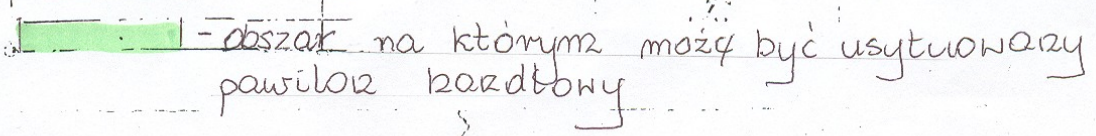 - obszar na którym może być usytuowany
pawilon handlowy